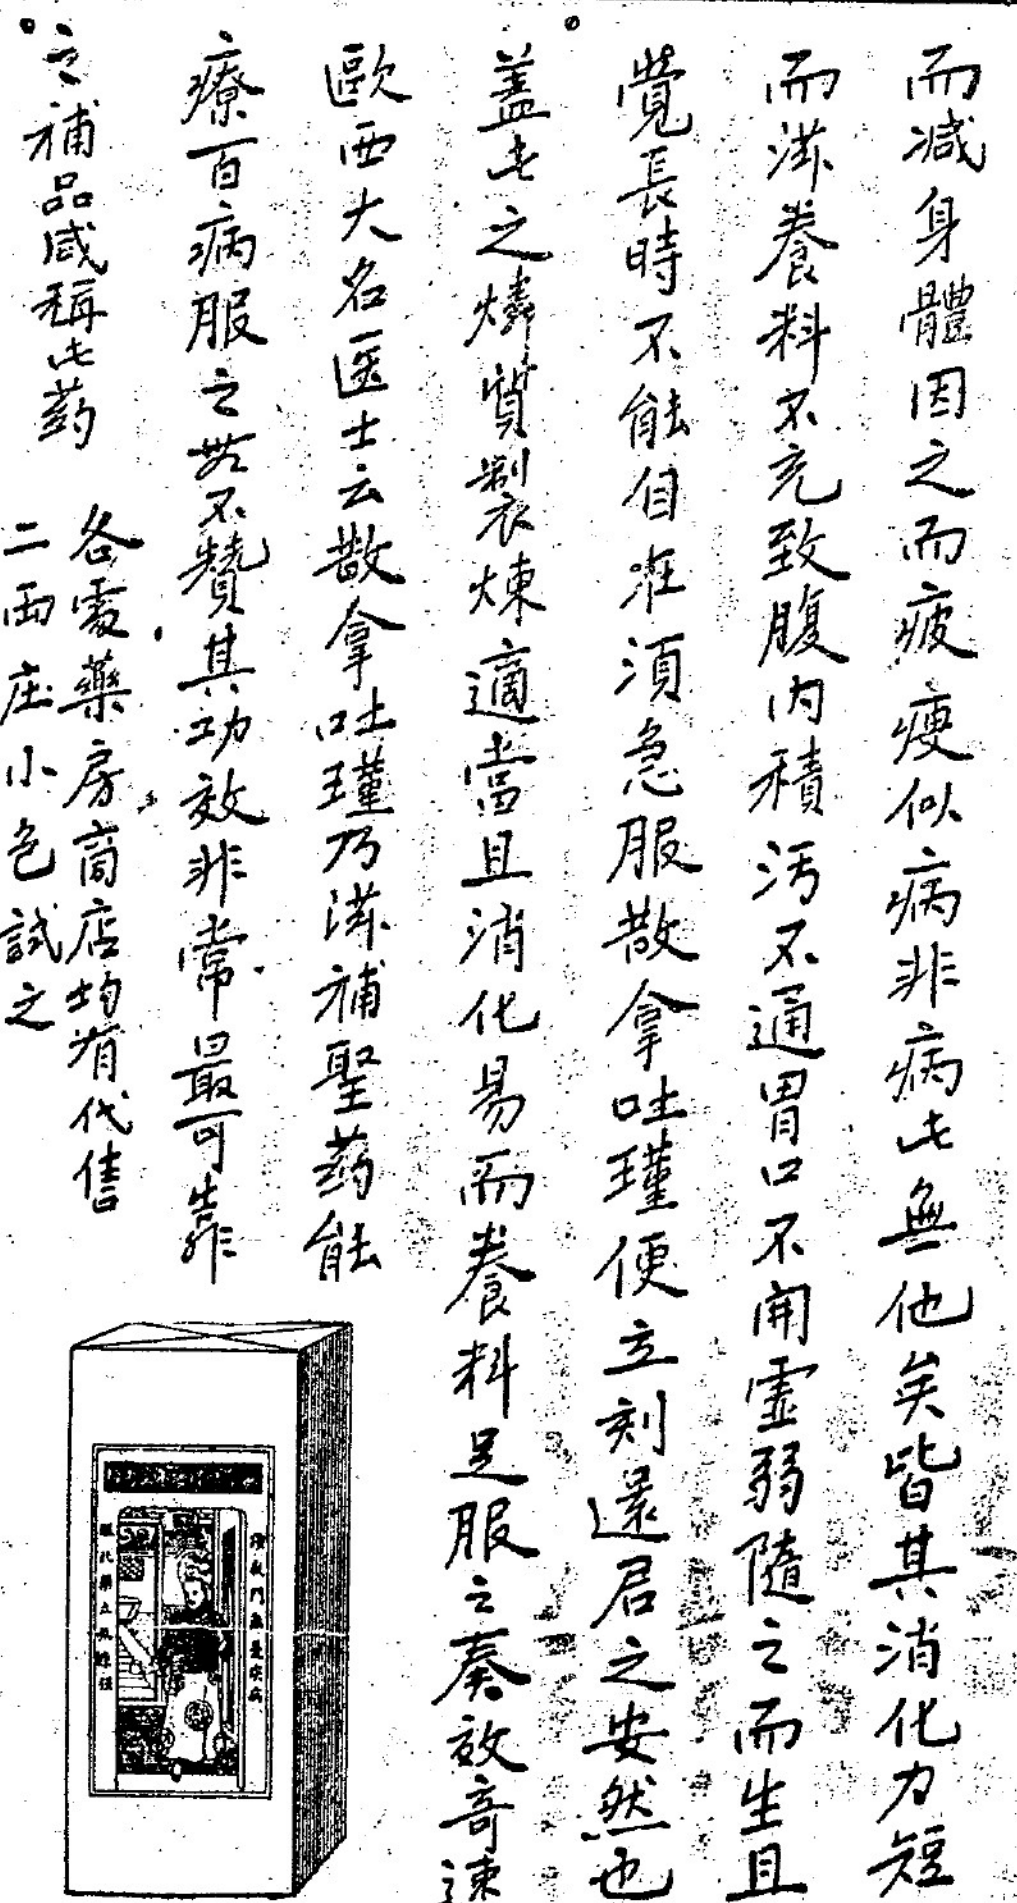 而減身體因之而疲瘦似病非病此無他矣皆其消化力短
而滋養料不充致腹内積污不通胃口不開虛弱隨之而生且
覺長時不能自在須急服散拿吐瑾便立刻還君之安然也
蓋此之燐質製煉適當且消化易而養料足服之奏效奇速
歐西大名医士云散拿吐瑾乃滋補聖药能
療百病服之無不贊其功效非常最可靠
之補品咸稱此药
各處藥房商店均有代售
二両庄小包試之